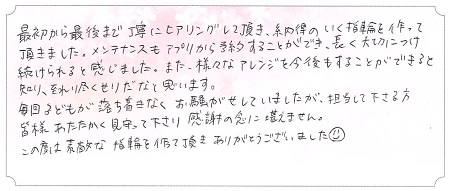 最初から最後まで丁寧にヒアリングして頂き、納得のいく指輪を作って
頂きました。メンテナンスもアプリから予約することができ、長く大切につけ
続けられると感じました。また、様々なアレンジを今後もすることができると
知り、至れり尽くせりだなと思います。
毎回子どもが落ち着きなくお騒がせしていましたが、担当して下さる方
皆様あたたかく見守って下さり感謝の念に堪えません。
この度は素敵な指輪を作って頂きありがとうございました